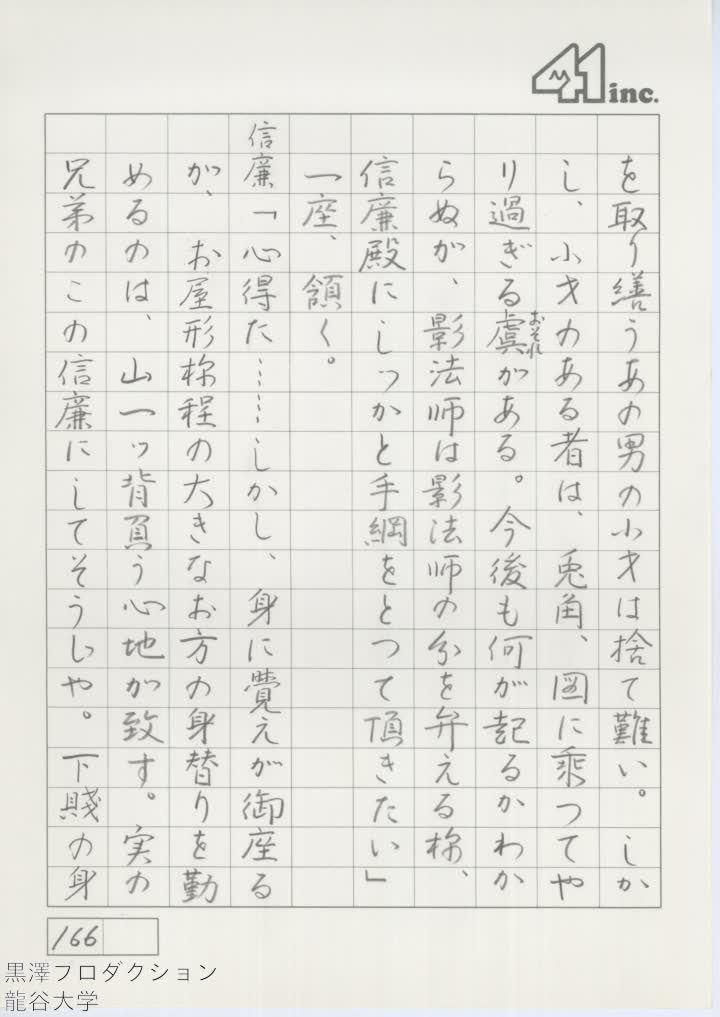 41 inc.
を取り繕うあの男の小才は捨て難い。しか
し、小才のある者は、兎角、図に乗つてや
り過ぎる虞がある。今後も何が起るかわか
おそれ
らぬが、影法師は影法師の分を弁える様、
信廉殿にしつかと手綱をとつて頂きたい」
一座、頷く。
信廉「心得た……しかし、身に覚えが御座る
が、お屋形様程の大きなお方の身替りを勤
めるのは、山一ッ背負う心地が致す。実の
兄弟のこの信廉にしてそうじや。下賤の身
166
黒澤プロダクション
龍谷大学